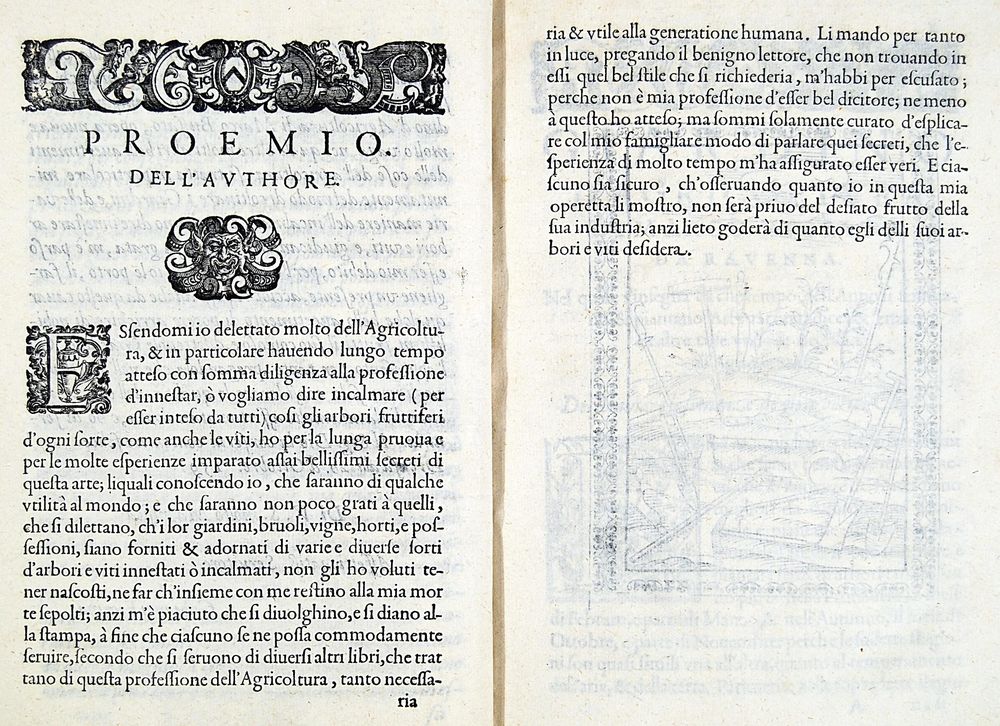 PROEMIO.
DELL'AVTHORE.
ESsendomi io delettato molto dell'Agricoltu-
ra, & in particolare hauendo lungo tempo
atteso con somma diligenza alla professione
d'innestar, ò vogliamo dire incalmare (per
esser inteso da tutti) così gli arbori fruttiferi
d'ogni sorte, come anche le viti, ho per la lunga pruoua e
per le molte esperienze imparato assai bellissimi secreti di
questa arte; liquali conoscendo io, che saranno di qualche
vtilità al mondo; e che saranno non poco grati à quelli,
che si dilettano, ch'i lor giardini, bruoli, vigne, horti, e pos-
sessioni, siano forniti & adornati di varie e diuerse sorti
d'arbori e viti innestati ò incalmati, non gli ho voluti te-
ner nascosti, ne far ch'insieme con me restino alla mia mor
te sepolti; anzi m'è piaciuto che si diuolghino, e si diano al-
la stampa, à fine che ciascuno se ne possa commodamente
seruire, secondo che si seruono di diuersi altri libri, che trat
tano di questa professione dell'Agricoltura, tanto necessa-
ria
ria & vtile alla generatione humana. Li mando per tanto
in luce, pregando il benigno lettore, che non trouando in
essi quel bel stile che si richiederia, m'habbi per escusato;
perche non è mia professione d'esser bel dicitore; ne meno
à questo ho atteso; ma sommi solamente curato d'esplica-
re col mio famigliare modo di parlare quei secreti, che l'e-
sperienza di molto tempo m'ha assigurato esser veri. E cia-
scuno sia sicuro, ch'osseruando quanto io in questa mia
operetta li mostro, non serà priuo del desiato frutto della
sua industria; anzi lieto goderà di quanto egli delli suoi ar-
bori e viti desidera.